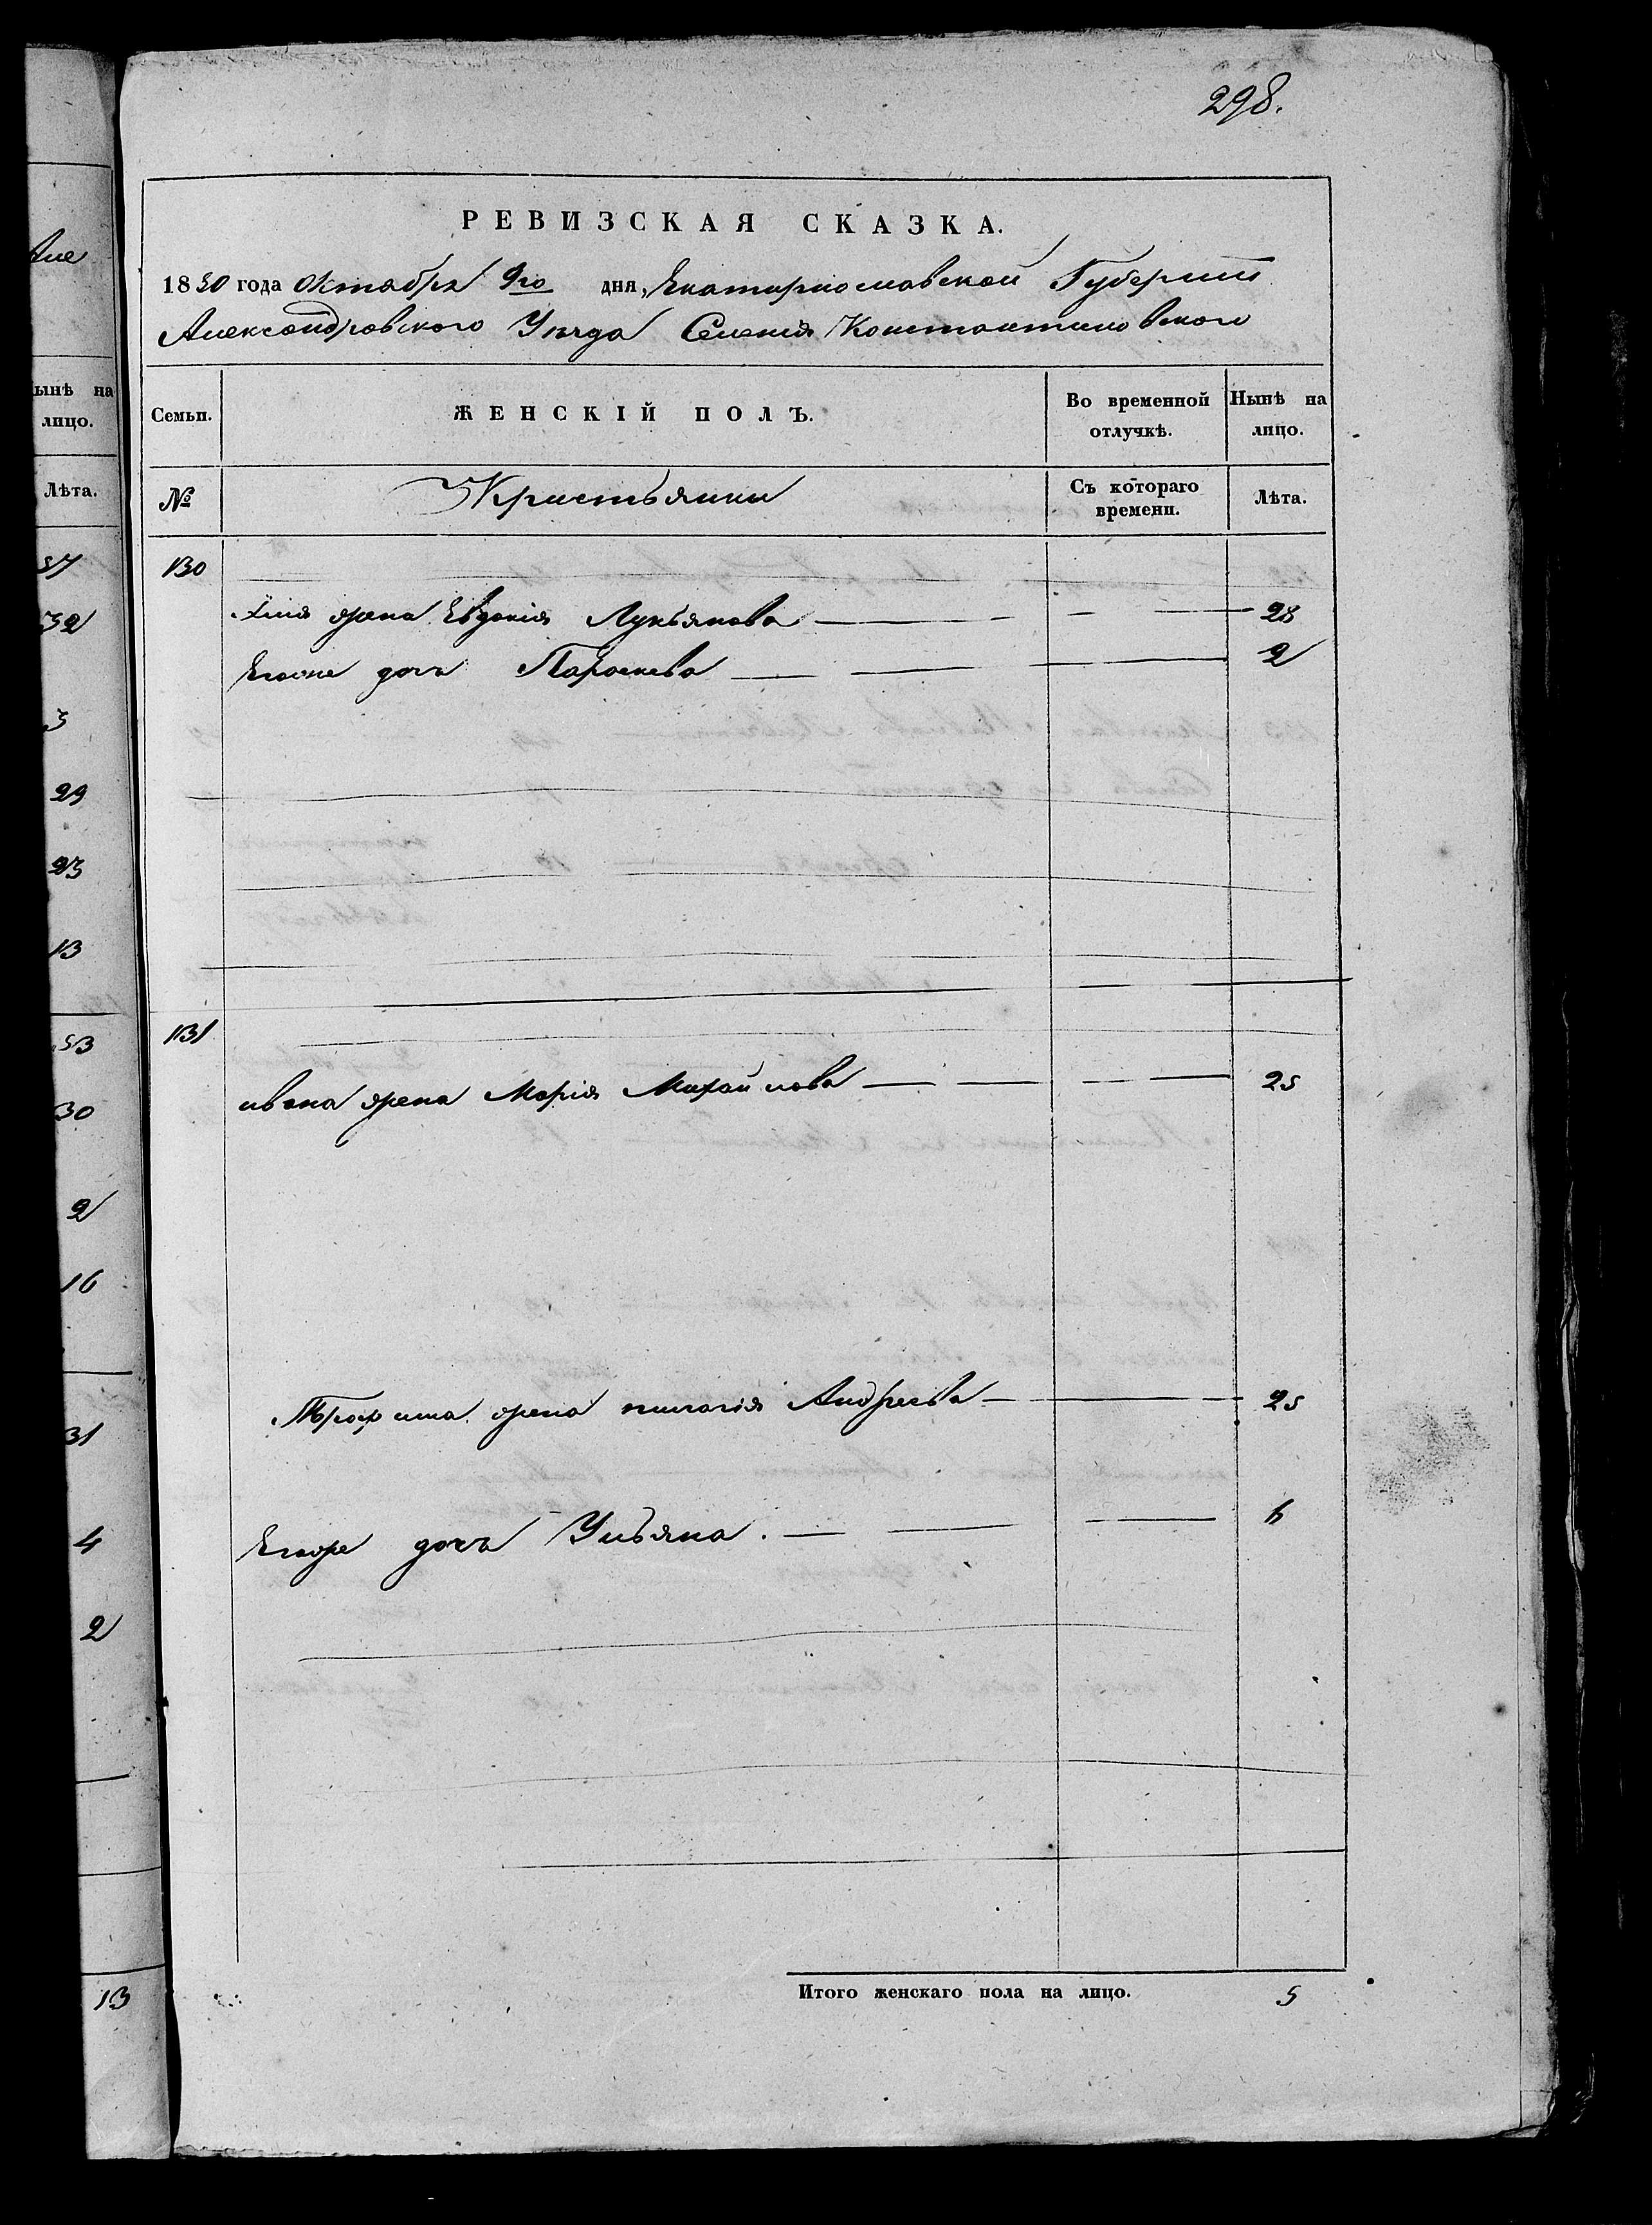 298.
РЕВИЗСКАЯ СКАЗКА.
1850 года Октября 9го дня, Екатеринославской Губернии
Александровского Уезда Селения Константиновского
Семьи. ЖЕНСКІЙ ПОЛЪ. Во временной отлучкѣ. Нынѣ на лицо.
№ Кристьянки Съ котораго времени. Лѣта.
130
жена Евдокия Лукьянова 28
дочь Параскева 2
131
ивана жена Мария Михайлова 25
Трофима жена пилагия Андреева 25
Егоже дочь Ульяна. 6
Итого женскаго пола на лицо. 5
ынѣ на
лицо.
Лѣта.
37
32
3
29
23
13
53
30
2
16
31
4
2
13